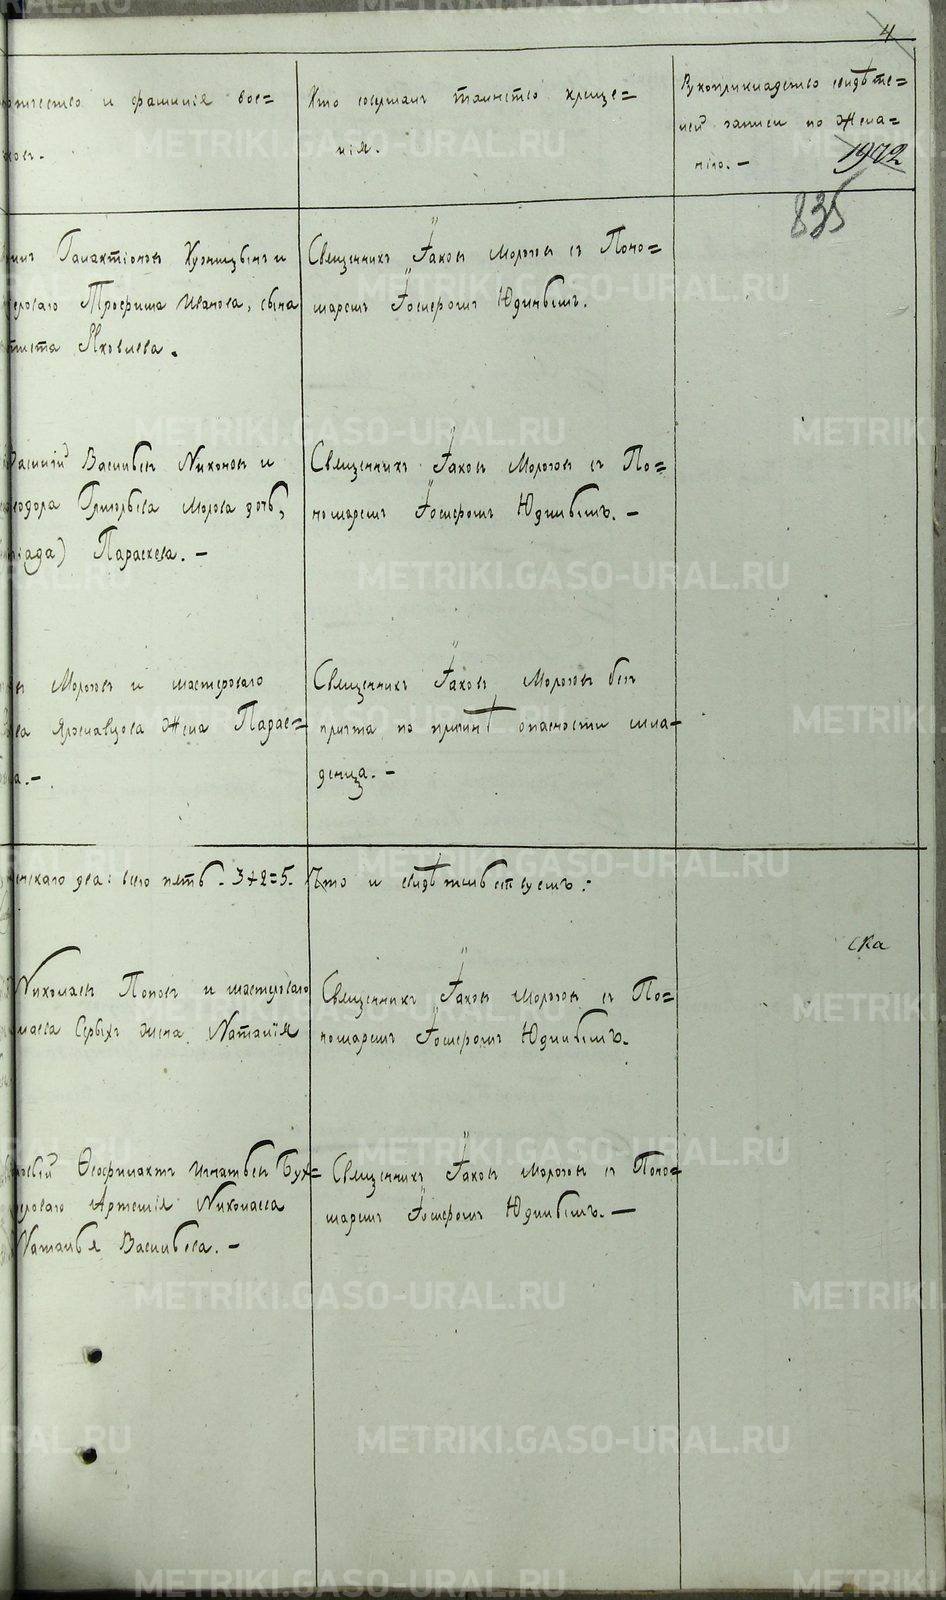 4
отчество и фамилія вос=
Кто совершалъ таинство креще=
нія.
Рукоприкладство свидѣте=
лей записи по жела=
нію. — 1972
835
Галактіоновъ Кузницынъ и
Трофима Иванова, сына
Яковлева.
Священникъ Іаковъ Морозовъ съ Поно=
маремъ Іосифомъ Юдинымъ.
Василій Васильевъ Никоновъ и
Григорьева Морева дочь,
Параскева. —
Священникъ Іаковъ Морозовъ съ По=
номаремъ Іосифомъ Юдинымъ. —
Морозовъ и мастероваго
Ярославцова жена Парас=
Священникъ Іаковъ Морозовъ безъ
причта по причинѣ опасности мла=
денца. —
женскаго два: всего пять. 3+2=5.
Что и свидѣтельствуемъ:
ска
Николаевъ Поповъ и мастероваго
жена Наталія
Священникъ Іаковъ Морозовъ съ По=
номаремъ Іосифомъ Юдинымъ.
Ѳеофилактъ Игнатьевъ Бух=
Артемія Николаева
Наталья Васильева. —
Священникъ Іаковъ Морозовъ съ Поно=
маремъ Іосифомъ Юдинымъ. —
METRIKI.GASO-URAL.RU